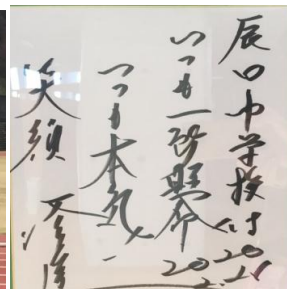 辰口中学校
いつも一所懸命
いつも本気
笑顔